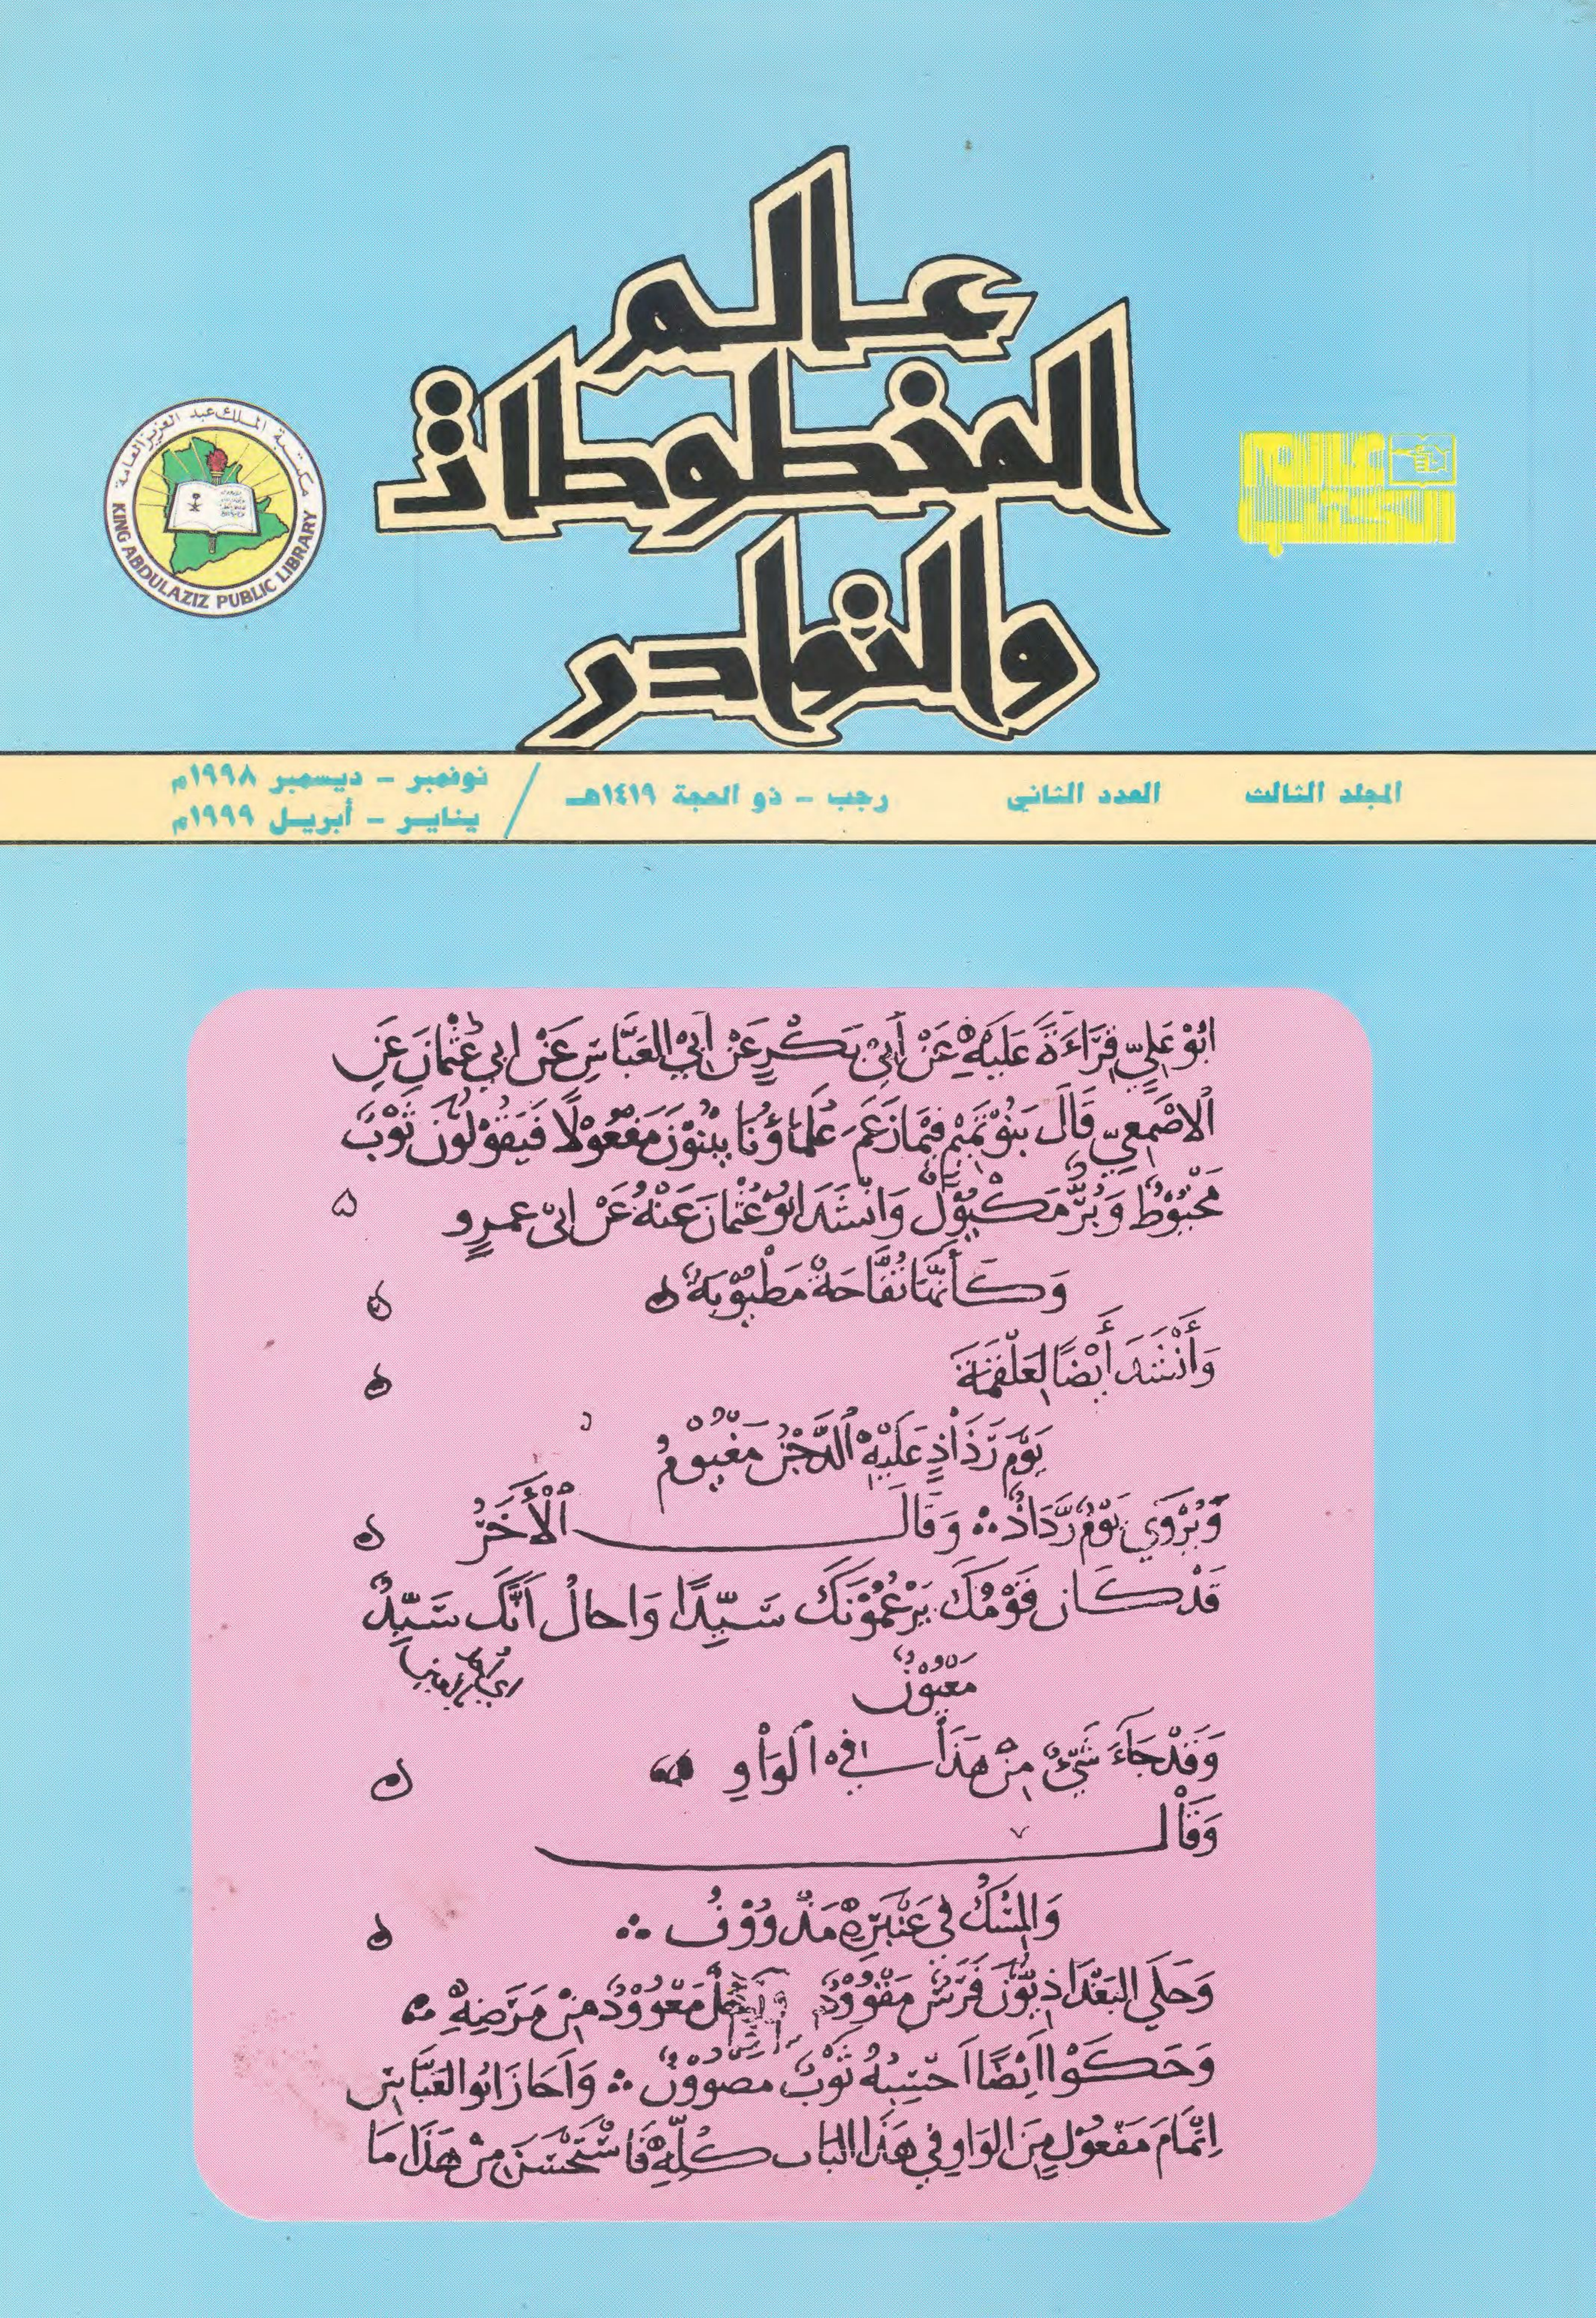 عالم
المخطوطات
والنوادر
مكتبة الملك عبد العزيز العامة
KING ABDULAZIZ PUBLIC LIBRARY
عالم
الكتب
المجلد الثالث العدد الثاني رجب - ذو الحجة ١٤١٩هـ / نوفمبر - ديسمبر ١٩٩٨م
يناير - أبريل ١٩٩٩م
ابُوْ عَلِيٍّ قِرَاءَةً عَلَيْهِ عَنْ أَبِي بَكْرٍ عَنْ أَبِي العَبَّاسِ عَنْ ابي عُثْمَانَ عَنِ
الاصْمَعِيِّ قَالَ بَنُوْ تَمِيْمٍ فِيْمَا زَعَمَ عُلَمَاؤُنَا يُتِمُّوْنَ مَفْعُوْلًا فَيَقُوْلُوْنَ ثَوْبٌ
مَخْيُوْطٌ وَبُرٌّ مَكْيُوْلٌ وَانْشَدَ ابُوْ عُثْمَانَ عَنْهُ عَنْ ابِي عمرٍو
وَكَأَنَّهَا تُفَّاحَةٌ مَطْيُوْبَةٌ
وَأَنْشَدَ أَيْضًا لِعَلْقَمَةَ
يَوْمِ رَذَاذٍ عَلَيْهِ الدَّجْنُ مَغْيُوْمُ
وَيُرْوَي يَوْمُ رَذَاذٍ وَقَالَ الْأَخَرُ
قَدْ كَانَ قَوْمُكَ يَزْعُمُوْنَكَ سَيِّدًا وَاخالُ اَنَّكَ سَيِّدٌ
مَعْيُوْنُ
وَقَدْ جَاءَ شَيْءٌ مِنْ هَذَا في الْوَاوِ
وَقَالَ
وَالمِسْكُ فِي عَنْبَرِهْ مَدْوُوْفُ
وَحَكَي البَغْدَاذِيُّوْنَ فَرَسٌ مَقْوُوْدٌ وَرَجُلٌ مَعْوُوْدٌ مِنْ مَرَضِهِ
وَحَكَوْا اَيْضًا اَحْسِبُهُ ثَوْبٌ مَصْوُوْنٌ وَاَجَازَ ابُو العَبَّاسِ
اِتْمَامَ مَفْعُوْلٍ مِنَ الوَاوِ فِي هَذَا البَابِ كُلِّهِ فَاسْتَحْسَنَ مِنْ هَذَا مَا